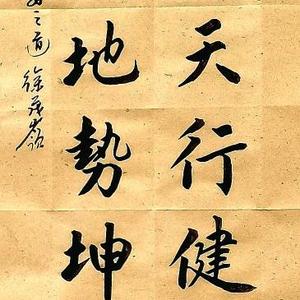 天行健
地勢坤
之道 徐茂